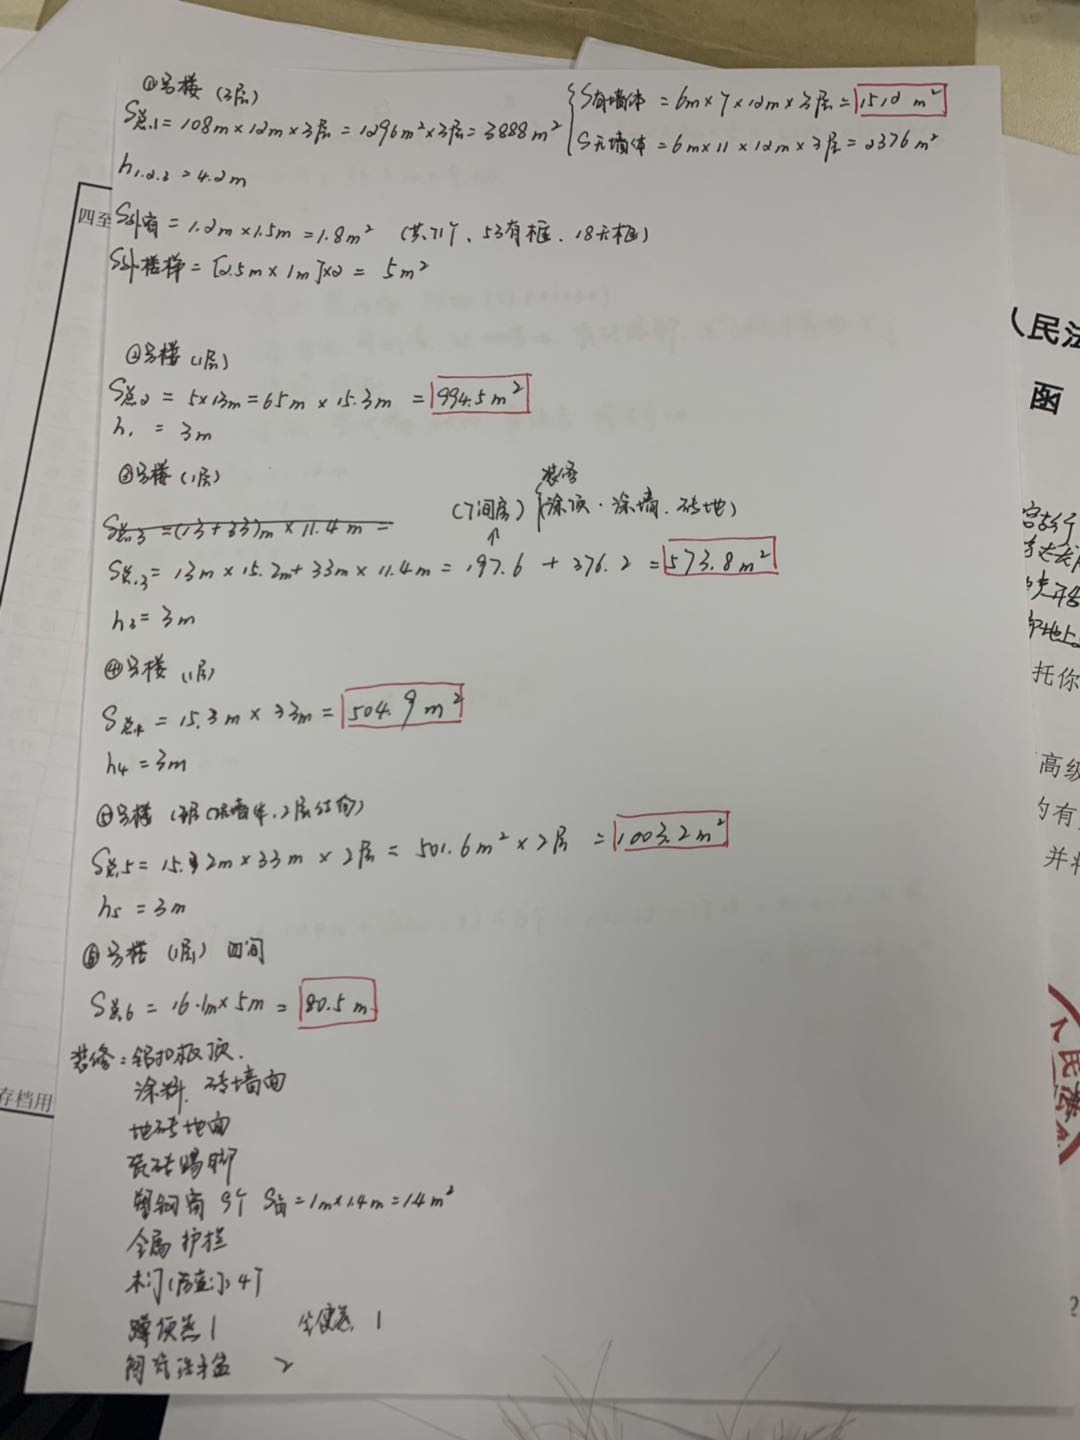 ①号楼（3层）
S总1 = 108m×12m×3层 = 1296m²×3层 = 3888m²
S有墙体 = 6m×7×12m×3层 = 1512 m²
S无墙体 = 6m×11×12m×3层 = 2376m²
h1.2.3 = 4.2m
S外窗 = 1.2m×1.5m = 1.8m²（共71个、53有框、18无框）
S外楼梯 = [2.5m×1m]×2 = 5m²
②号楼（1层）
S总2 = 5×13m = 65m × 15.3m = 994.5m²
h1 = 3m
③号楼（1层）
S总3 = (13+33)m × 11.4m =
（7间房）
装修
涂顶·涂墙·砖地）
S总3 = 13m×15.2m+33m×11.4m = 197.6 + 376.2 = 573.8m²
h3 = 3m
④号楼（1层）
S总4 = 15.3m × 33m = 504.9m²
h4 = 3m
⑤号楼
S总5 = 15.2m×33m × 2层 = 501.6m²×2层 = 1003.2m²
h5 = 3m
⑥号楼（1层）四间
S总6 = 16.1m×5m = 80.5m
装修：铝扣板顶.
涂料、砖墙面
地砖地面
瓷砖踢脚
塑钢窗 9个 S窗 = 1m×1.4m = 1.4m²
金属护栏
木门 4个
蹲便器 1 坐便器 1
洗手盆 2
四至
存档用
人民法
函
托你
高级
的有
并将
人民法